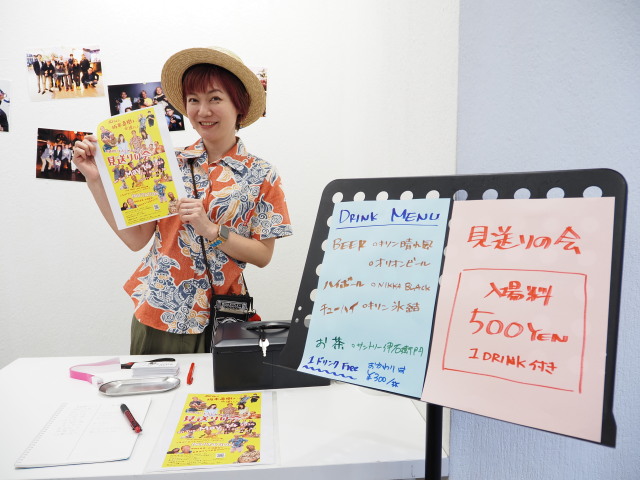 見送りの会
見送りの会
DRINK MENU
BEER ○キリン晴れ風
○オリオンビール
ハイボール ○NIKKA BLACK
チューハイ ○キリン氷結
お茶 ○サントリー伊右衛門
1ドリンク Free おかわりは
¥300/杯
見送りの会
入場料
500YEN
1DRINK付き